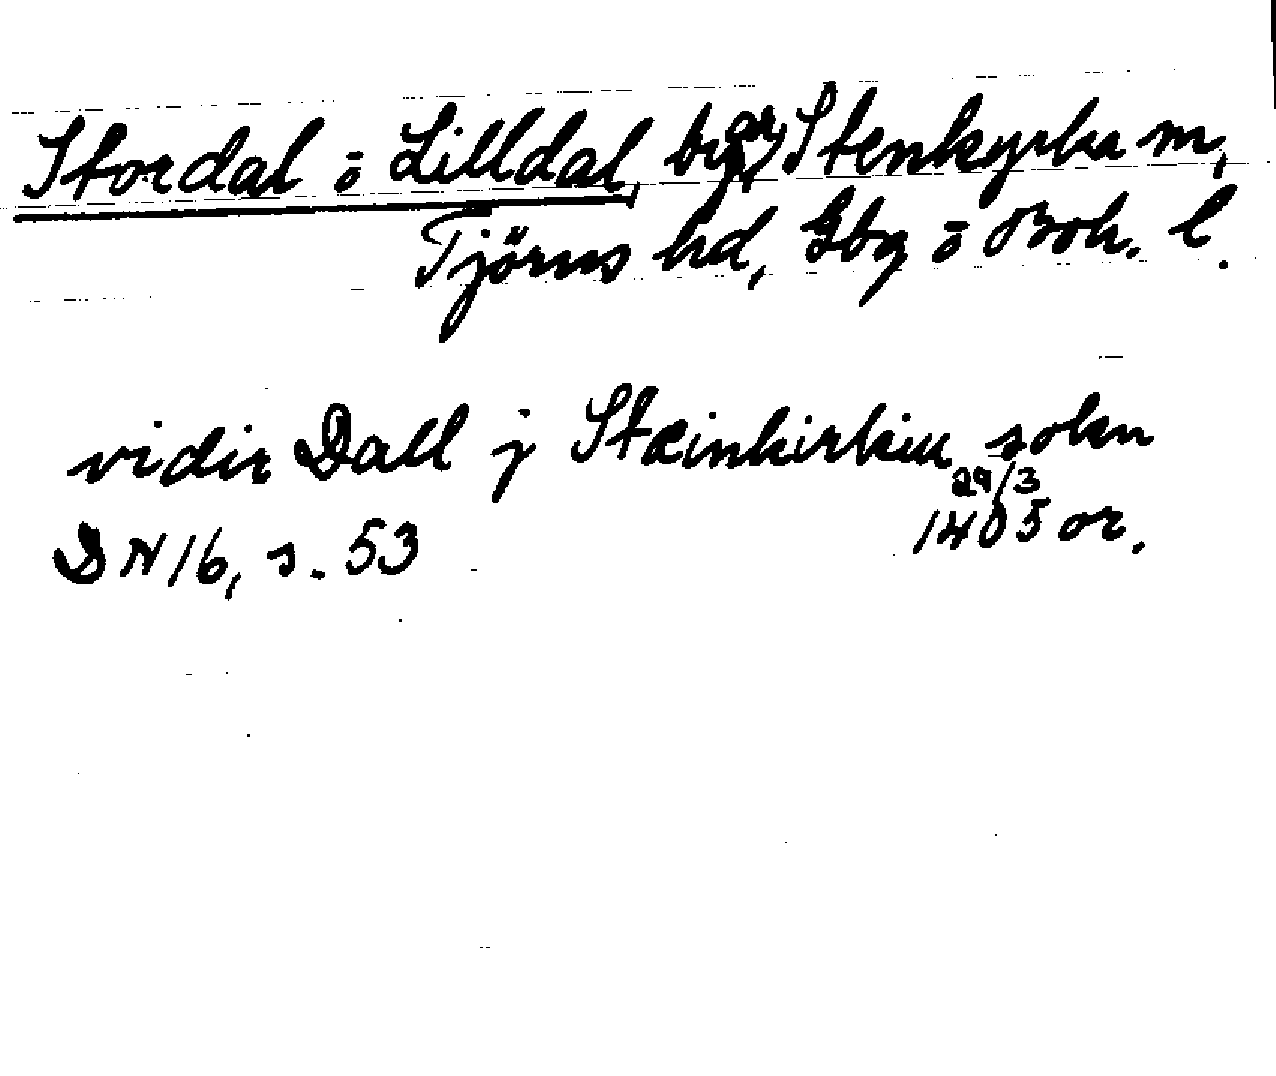 Stordal o Lilldal, byar, Stenkyrka sn,
Tjörns hd, Gbg o Boh. l.
vidir Dall j Stæinkirkiu sokn
29/3
DN 16, s. 53 1405 or.